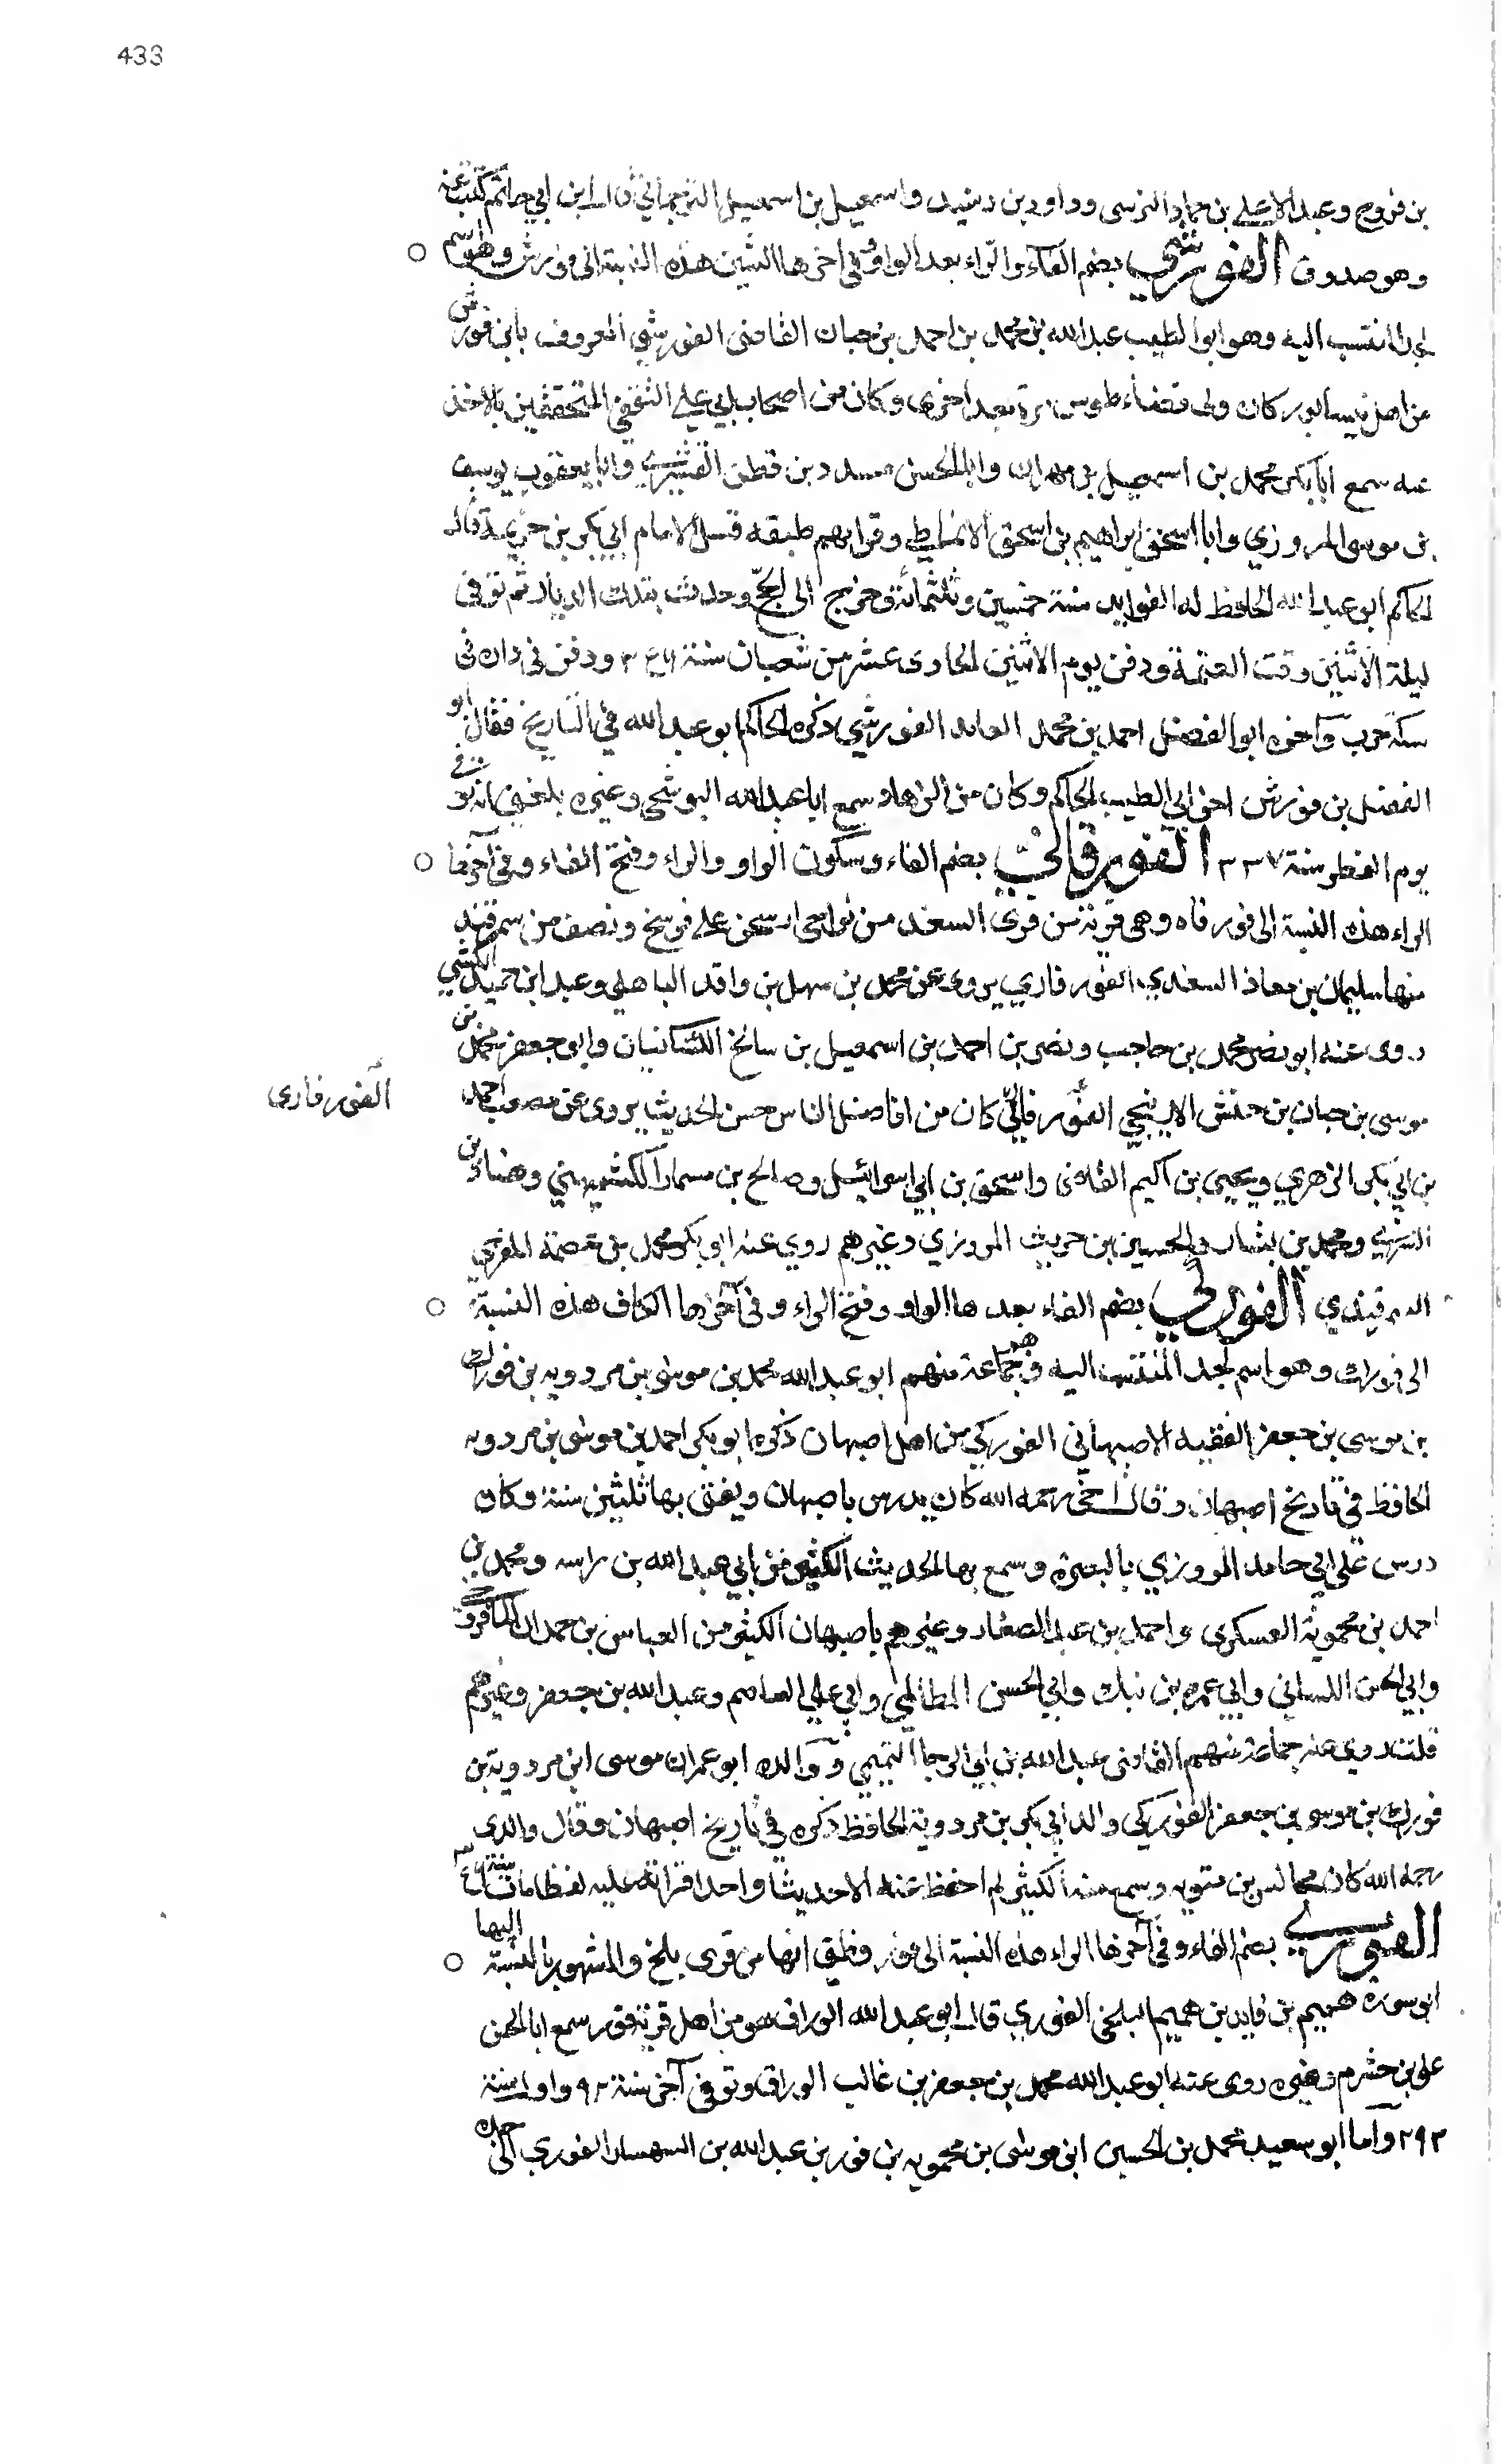 433
بن فروح وعبد الاعلى بن حماد النرسى وداود بن رشيد واسمعيل بن اسمعيل الترجماني قال ابن ابي حاتم كتبت عنه
وهو صدوق الفورشي بضم الفاء والراء بعد الواو وفي اخرها الشين هذه النسبة الى فورش وهو اسم
لجد المنتسب اليه وهو ابو الطيب عبد الله بن محمد بن احمد بن حبان القاضى الفورشي المعروف بابن فورش
من اهل نيسابور كان ولى قضاء طوس مرة بعد اخرى وكان من اصحاب ابي علي الثقفي المتحققين بالاخذ
عنه سمع ابا بكر محمد بن اسمعيل بن مهران وابا الحسن مسدد بن قطن القشيري وابا يعقوب يوسف
بن موسى المروزي وابا اسحق ابراهيم بن اسحق الانماطي وقرابهم طبقه قبل الامام ابي بكر بن خزيمة قال
الحاكم ابو عبد الله الحافظ له الفوايد سنة خمسين وثلثمائة وخرج الى الحج وحدث بتلك الديار ثم توفى
ليلة الاثنين وقت العتمة ودفن يوم الاثنين الحادى عشر من شعبان سنة ودفن في داره فى
سكة حرب وآخوه ابو الفضل احمد بن محمد العابد الفورشي ذكره الحاكم ابو عبد الله في التاريخ فقال ابو
الفضل بن فورش اخو ابي الطيب الحاكم وكان من الزهاد سمع ابا عبد الله البوشنجى وغيره بلغني انه توفي
يوم الفطر سنة ٣٣٧ الفورفاري بضم الفاء وسكون الواو والراء وفتح الفاء وفي آخرها
الراء هذه النسبة الى فورفاه وهى قرية من قرى السغد من نواحى اربنجن على فرسخ ونصف من سمرقند
منها سليمان بن معاذ السغدي الفورفاري يروى عن محمد بن سهل بن واقد الباهلي وعبد ابن حميد الكشي
روى عنه ابو نصر محمد بن حاجب ونصر بن احمد بن اسمعيل بن سانح الكشانيان وابو جعفر محمد بن
الفورفارى
موسى بن حبان بن حنش الاربنجي الفورفاري كان من افاضل الناس حسن الحديث يروى عن مصعب احمد
بن ابي بكر الزهري ويحيى بن اكثم القاضى واسحق بن ابي اسرائيل وصالح بن مسمار الكشميهني وهناد بن
السري ومحمد بن بشار والحسين بن حريث المروزي وغيرهم روي عنه ابو بكر محمد بن عصمة المقري
السمرقندي الفوركي بضم الفاء بعدها الواو وفتح الراء وفى آخرها الكاف هذه النسبة
الى فورك وهو اسم لجد المنتسب اليه وهم جماعة منهم ابو عبد الله محمد بن موسى بن مردويه بن فورك
بن موسى بن جعفر الفقيه الاصبهاني الفوركي من اهل اصبهان ذكره ابو بكر احمد بن موسى بن مردويه
الحافظ في تاريخ اصبهان وقال اخى رحمه الله كان يدرس باصبهان ويفتى بها ثلثين سنة وكان
درس على ابي حامد المروزي بالبصرة وسمع بها الحديث الكثير من ابي عبد الله بن راسه ومحمد بن
احمد بن محموية العسكرى واحمد بن عبد الصفار وغيرهم باصبهان الكثير من العباس بن حمدان
وابي الحسن اللنباني وابي عمرو بن وابي الحسن المظالمى وابي علي العاصم وعبد الله بن جعفر وغيرهم
قلت روى عنه جماعة منهم القاضى عبد الله بن ابي الرجا التميمي ووالده ابو عمران موسى ابن مردويه بن
فورك بن موسى بن جعفر الفوركي والد أبي بكر بن مردوية الحافظ ذكره في تاريخ اصبهان وقال والدى
رحمه الله كان مجالس بن متويه وسمع منه الكثير لم احفظ عنه الا حديثا واحدا قراته عليه لفظا مات سنة
الفوري بضم الفاء وفى آخرها الراء هذه النسبة الى فور وظني انها من قرى بلخ والمشهور بالنسبة اليها
ابو سورة هميم بن فايد بن هميم البلخى الفوري قال ابو عبد الله الوراق هو من اهل قرية فور سمع ابا الحسن
على بن خشرم وغيره روى عنه ابو عبد الله محمد بن جعفر بن غالب الوراق وتوفى آخر سنة ٩٢ واول سنة
٢٩٣ واما ابو سعيد محمد بن الحسين ابن موسى بن محمويه بن فور بن عبد الله بن الفوري الى جده